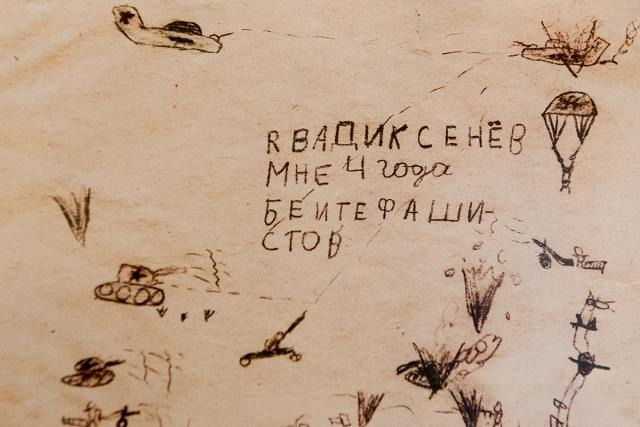 R ВАДИК СЕНЁВ
МНЕ 4 года
БЕИТЕ ФАШИ-
СТОВ